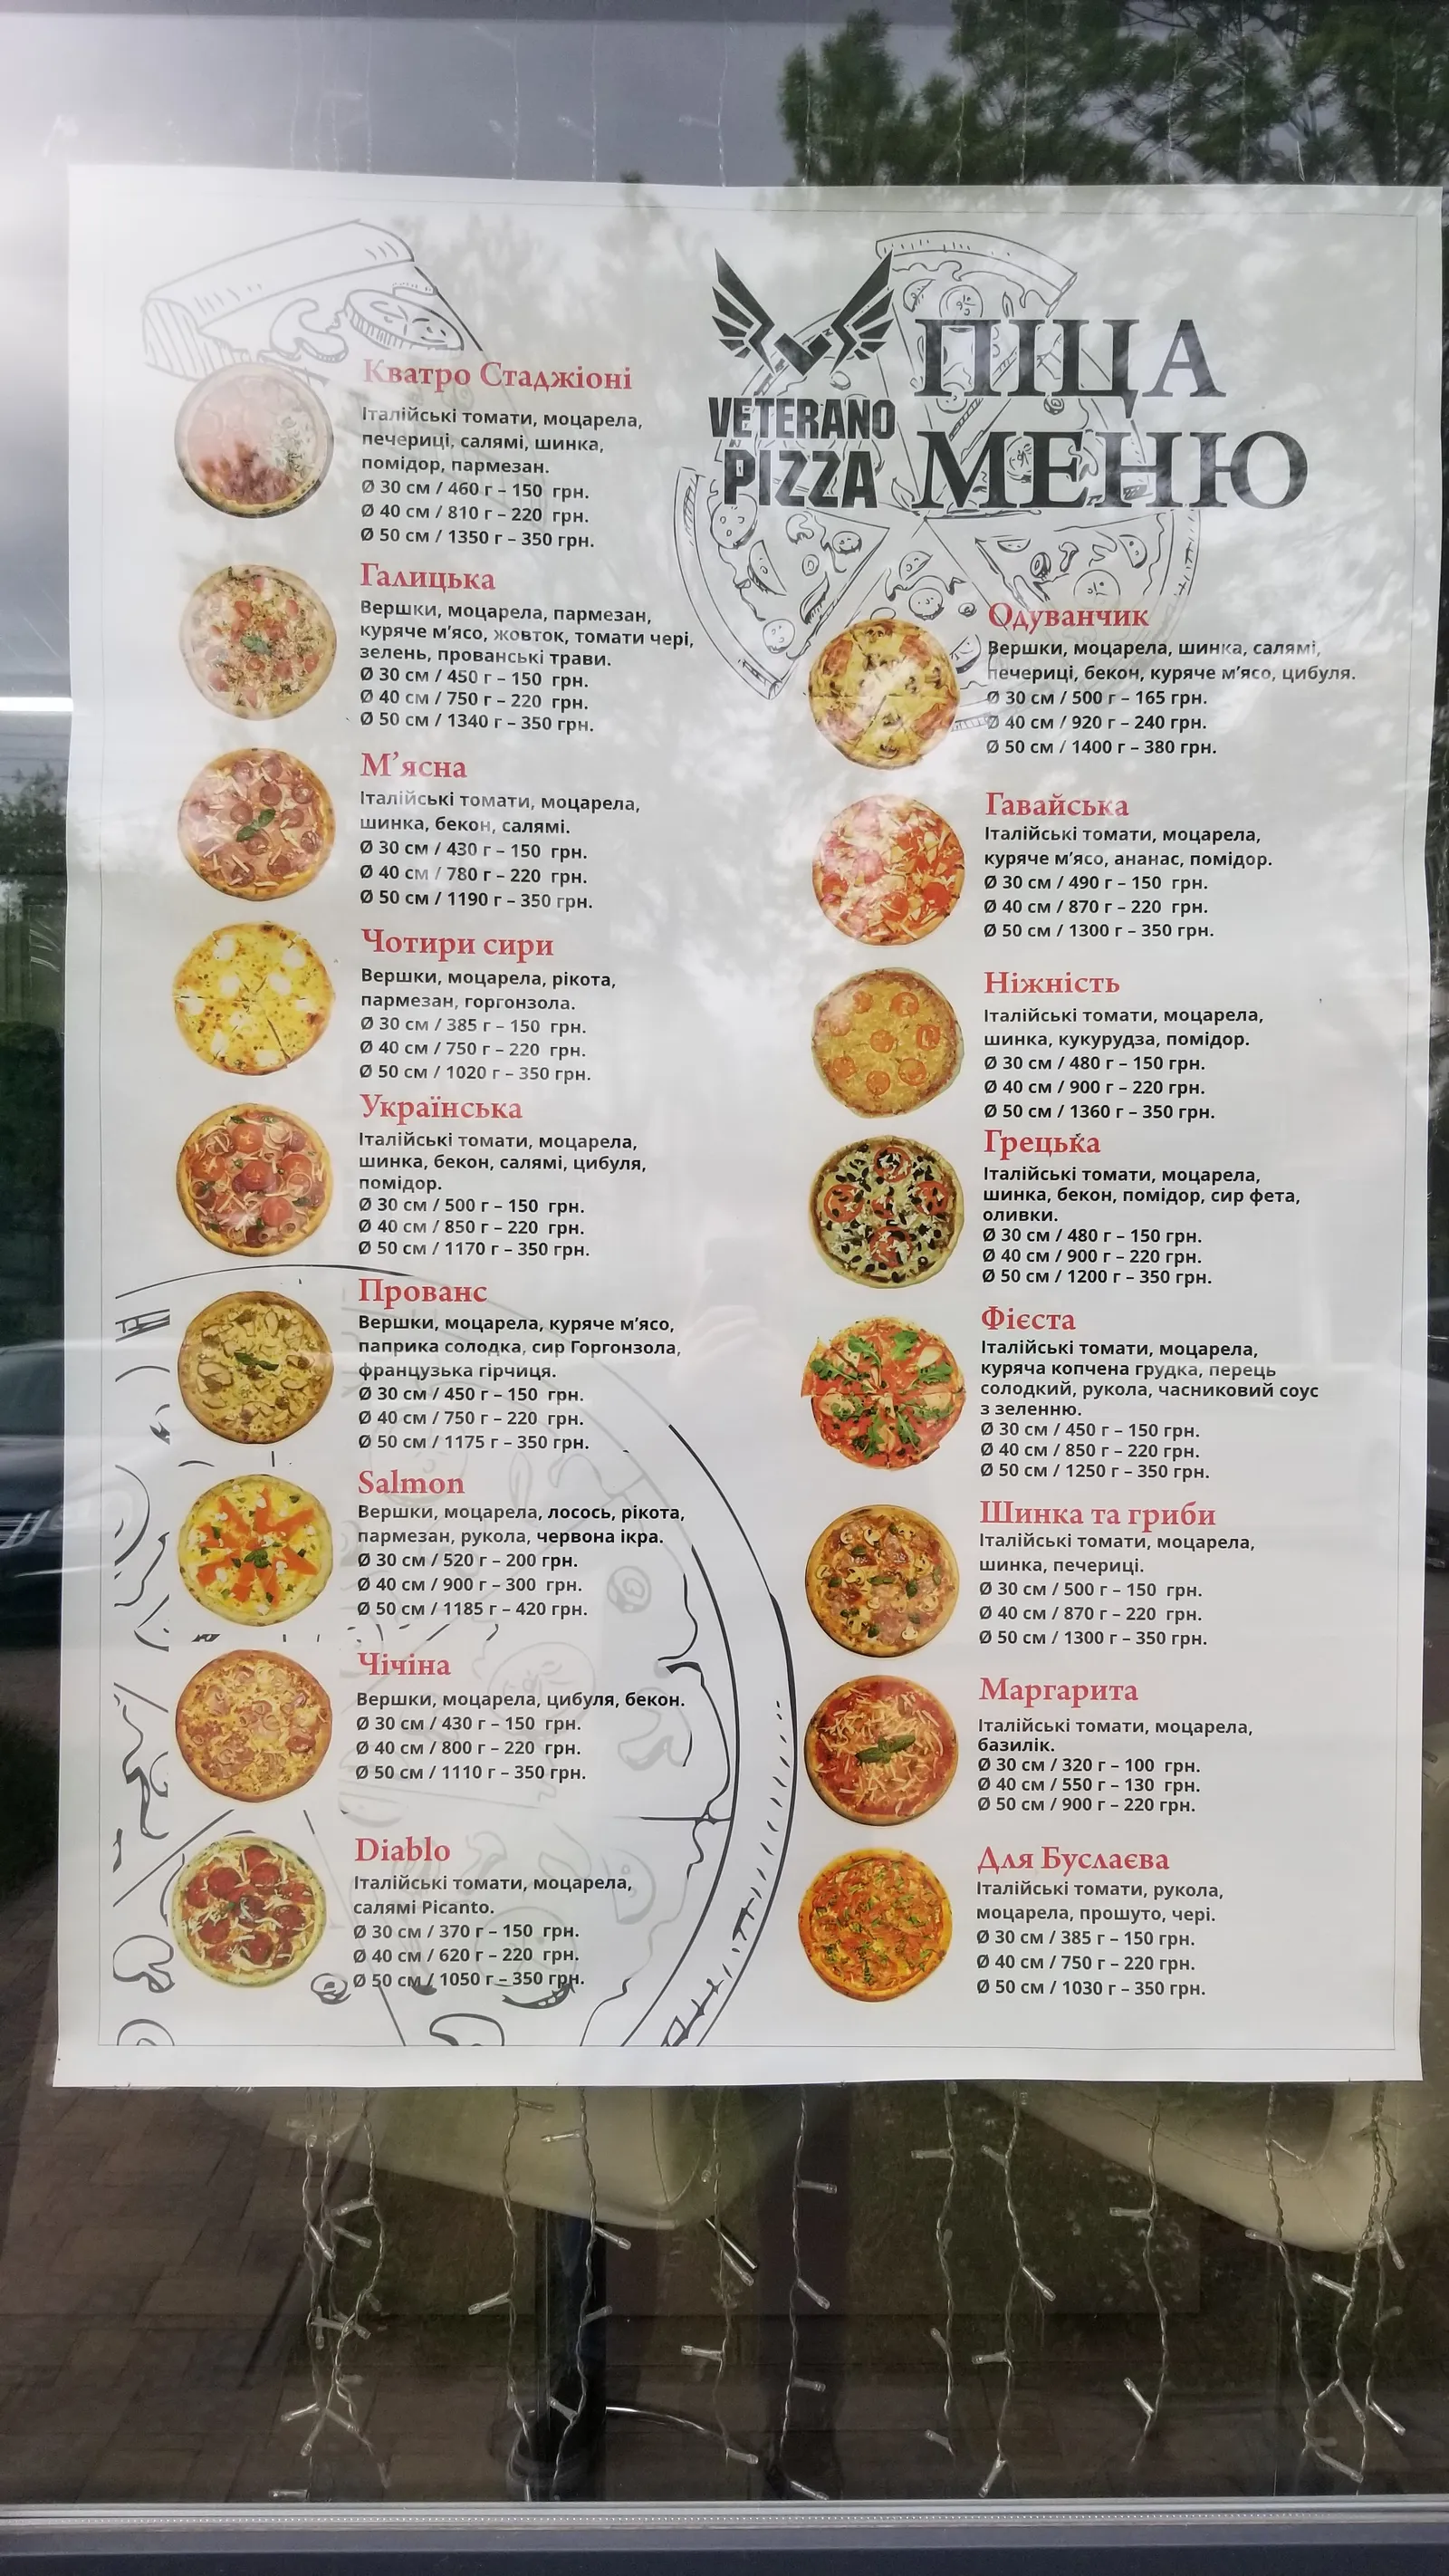 VETERANO
PIZZA
ПІЦА
МЕНЮ
Кватро Стаджіоні
Італійські томати, моцарела,
печериці, салямі, шинка,
помідор, пармезан.
Ø 30 см / 460 г – 150 грн.
Ø 40 см / 810 г – 220 грн.
Ø 50 см / 1350 г – 350 грн.
Галицька
Вершки, моцарела, пармезан,
куряче м’ясо, жовток, томати чері,
зелень, прованські трави.
Ø 30 см / 450 г – 150 грн.
Ø 40 см / 750 г – 220 грн.
Ø 50 см / 1340 г – 350 грн.
М’ясна
Італійські томати, моцарела,
шинка, бекон, салямі.
Ø 30 см / 430 г – 150 грн.
Ø 40 см / 780 г – 220 грн.
Ø 50 см / 1190 г – 350 грн.
Чотири сири
Вершки, моцарела, рікота,
пармезан, горгонзола.
Ø 30 см / 385 г – 150 грн.
Ø 40 см / 750 г – 220 грн.
Ø 50 см / 1020 г – 350 грн.
Українська
Італійські томати, моцарела,
шинка, бекон, салямі, цибуля,
помідор.
Ø 30 см / 500 г – 150 грн.
Ø 40 см / 850 г – 220 грн.
Ø 50 см / 1170 г – 350 грн.
Прованс
Вершки, моцарела, куряче м’ясо,
паприка солодка, сир Горгонзола,
французька гірчиця.
Ø 30 см / 450 г – 150 грн.
Ø 40 см / 750 г – 220 грн.
Ø 50 см / 1175 г – 350 грн.
Salmon
Вершки, моцарела, лосось, рікота,
пармезан, рукола, червона ікра.
Ø 30 см / 520 г – 200 грн.
Ø 40 см / 900 г – 300 грн.
Ø 50 см / 1185 г – 420 грн.
Чічіна
Вершки, моцарела, цибуля, бекон.
Ø 30 см / 430 г – 150 грн.
Ø 40 см / 800 г – 220 грн.
Ø 50 см / 1110 г – 350 грн.
Diablo
Італійські томати, моцарела,
салямі Picanto.
Ø 30 см / 370 г – 150 грн.
Ø 40 см / 620 г – 220 грн.
Ø 50 см / 1050 г – 350 грн.
Одуванчик
Вершки, моцарела, шинка, салямі,
печериці, бекон, куряче м’ясо, цибуля.
Ø 30 см / 500 г – 165 грн.
Ø 40 см / 920 г – 240 грн.
Ø 50 см / 1400 г – 380 грн.
Гавайська
Італійські томати, моцарела,
куряче м’ясо, ананас, помідор.
Ø 30 см / 490 г – 150 грн.
Ø 40 см / 870 г – 220 грн.
Ø 50 см / 1300 г – 350 грн.
Ніжність
Італійські томати, моцарела,
шинка, кукурудза, помідор.
Ø 30 см / 480 г – 150 грн.
Ø 40 см / 900 г – 220 грн.
Ø 50 см / 1360 г – 350 грн.
Грецька
Італійські томати, моцарела,
шинка, бекон, помідор, сир фета,
оливки.
Ø 30 см / 480 г – 150 грн.
Ø 40 см / 900 г – 220 грн.
Ø 50 см / 1200 г – 350 грн.
Фієста
Італійські томати, моцарела,
куряча копчена грудка, перець
солодкий, рукола, часниковий соус
з зеленню.
Ø 30 см / 450 г – 150 грн.
Ø 40 см / 850 г – 220 грн.
Ø 50 см / 1250 г – 350 грн.
Шинка та гриби
Італійські томати, моцарела,
шинка, печериці.
Ø 30 см / 500 г – 150 грн.
Ø 40 см / 870 г – 220 грн.
Ø 50 см / 1300 г – 350 грн.
Маргарита
Італійські томати, моцарела,
базилік.
Ø 30 см / 320 г – 100 грн.
Ø 40 см / 550 г – 130 грн.
Ø 50 см / 900 г – 220 грн.
Для Буслаєва
Італійські томати, рукола,
моцарела, прошуто, чері.
Ø 30 см / 385 г – 150 грн.
Ø 40 см / 750 г – 220 грн.
Ø 50 см / 1030 г – 350 грн.